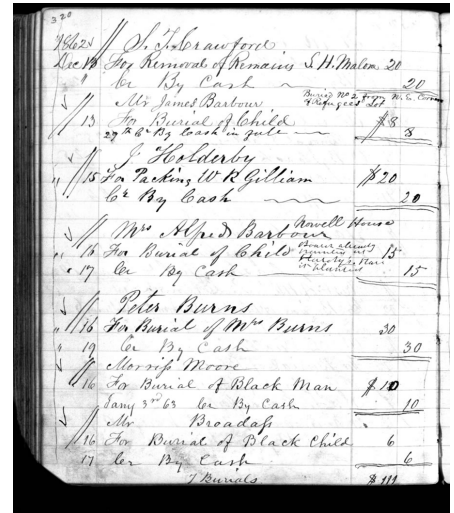 320
1862 S. T. Crawford
Dec 13 For Removal of Remains S. H. Malom 20
" Cr By Cash 20
Mr James Barbour Buried No 2 from N. E. Corner
of Refugees Lot
13 For Burial of Child $8
27th Cr By Cash in full 8
J Holderby
" 15 For Packing W R Gilliam $20
Cr By Cash 20
Mrs Alfred Barbour Nowell House
" 16 For Burial of Child 15
" 17 Cr By Cash 15
Peter Burns
" 16 For Burial of Mrs Burns 30
" 19 Cr By Cash 30
Morriss Moore
16 For Burial of Black Man $10
Jany 3rd 63 Cr By Cash 10
Mr Broadass
16 For Burial of Black Child 6
17 Cr By Cash 6
7 Burials $111